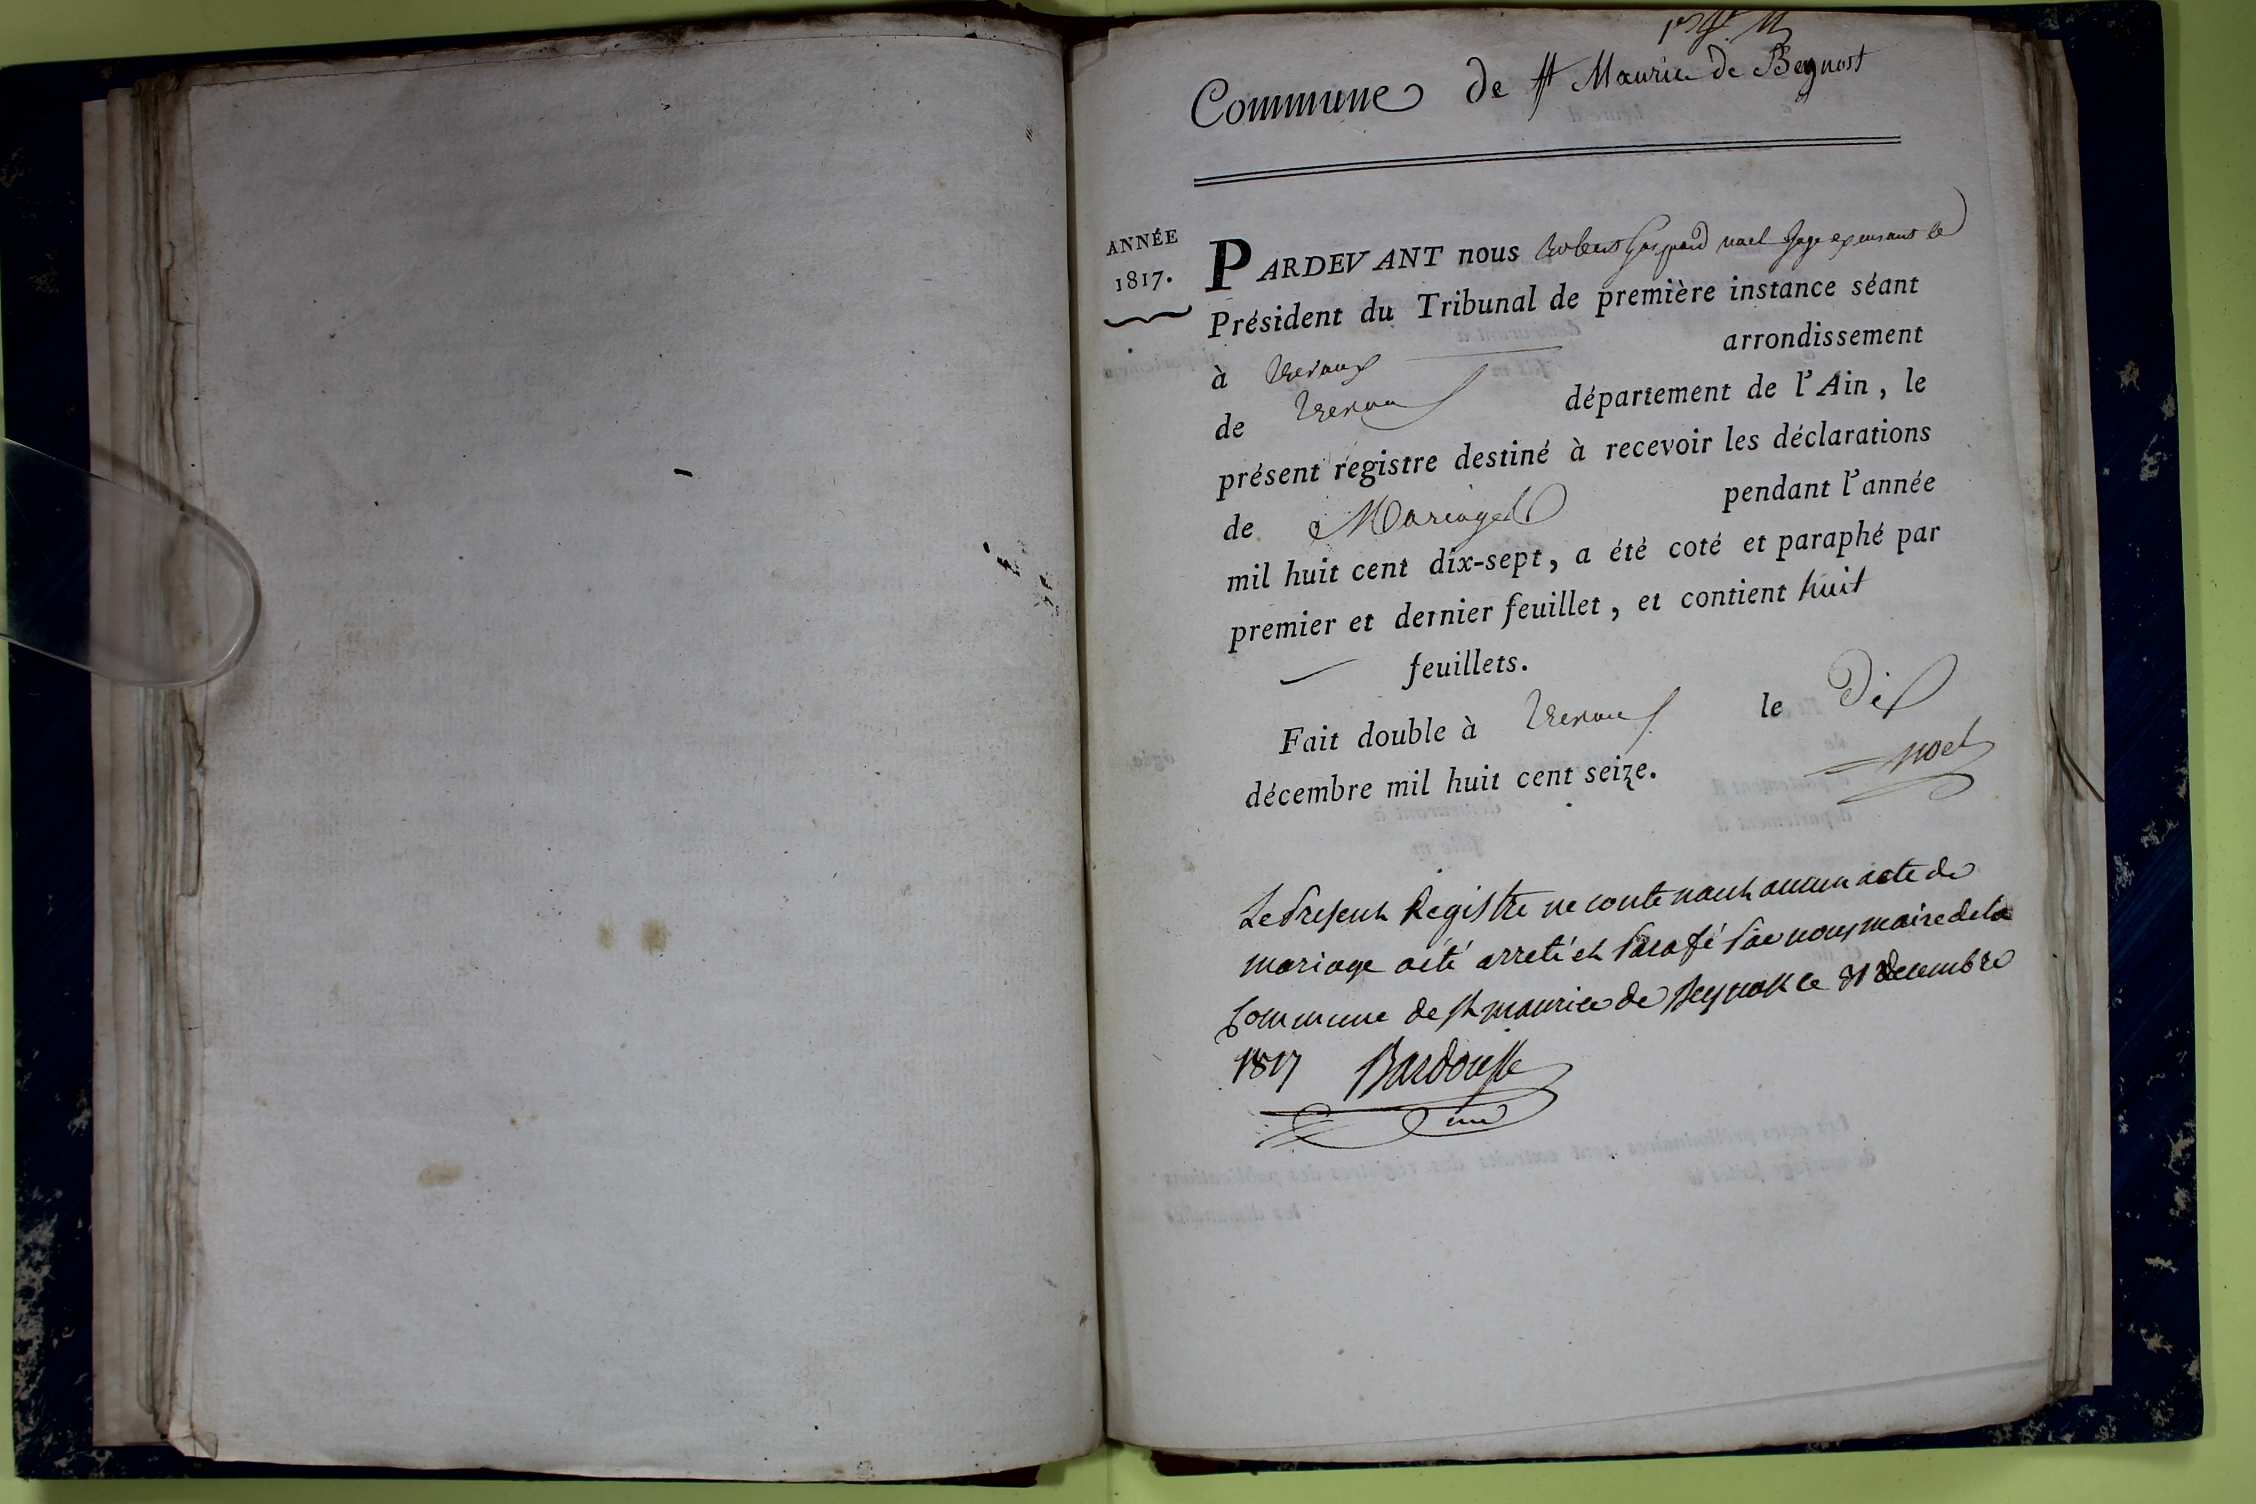 Commune de St Maurice de Beynost
ANNÉE
1817.
PARDEVANT nous Robert Gaspard Noel Juge exerçant le
Président du Tribunal de première instance séant
à Trevoux arrondissement
de Trevoux département de l'Ain, le
présent registre destiné à recevoir les déclarations
de Mariages pendant l'année
mil huit cent dix-sept, a été coté et paraphé par
premier et dernier feuillet, et contient huit
feuillets.
Fait double à Trevoux le Dix
décembre mil huit cent seize.
Noel
Le Present Registre ne contenant aucun acte de
mariage a été arreté et Parafé Par nous maire de la
Commune de St maurice de Beynost le 31 Decembre
1817 Bardousse